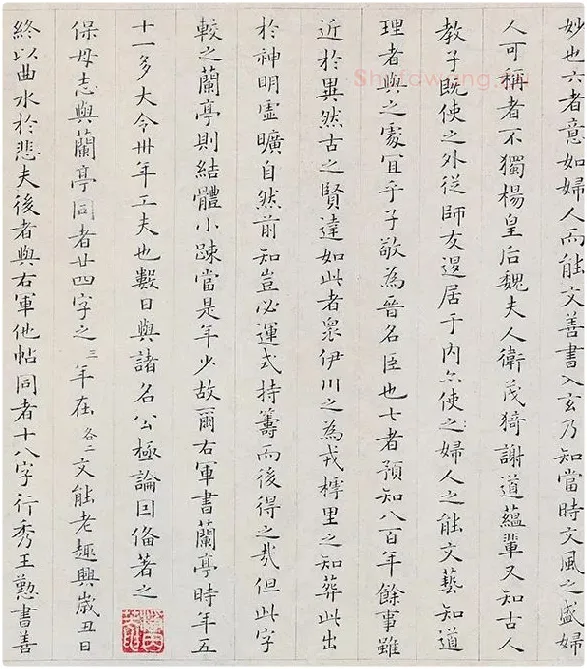 妙也六者意如婦人而能文善書入玄乃知當時文風之盛婦
人可稱者不獨楊皇后魏夫人衛茂猗謝道蘊輩又知古人
教子既使之外從師友退居于内亦使之婦人之能文藝知道
理者與之處宜乎子敬為晉名臣也七者預知八百年餘事雖
近於異然古之賢達如此者衆伊川之為戎樗里之知葬此出
於神明虛曠自然前知豈必運式持籌而後得之哉但此字
較之蘭亭則結體小疎當是年少故爾右軍書蘭亭時年五
十一多大令卅年工夫也數日與諸名公極論因俻著之
保母志與蘭亭同者廿四字之三年在各二文能老趣興歲丑日
終以曲水於悲夫後者與右軍他帖同者十八字行秀王懃書善